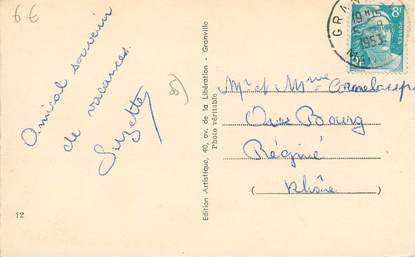 6€
Amical souvenir
de vacances
Suzette
12
Edition Artistique, 40, av. de la Libération - Granville
Photo véritable
GRAN
19H
1953
8F
POSTES
Mr et Mme
Bourg
Régnié
(Rhône)